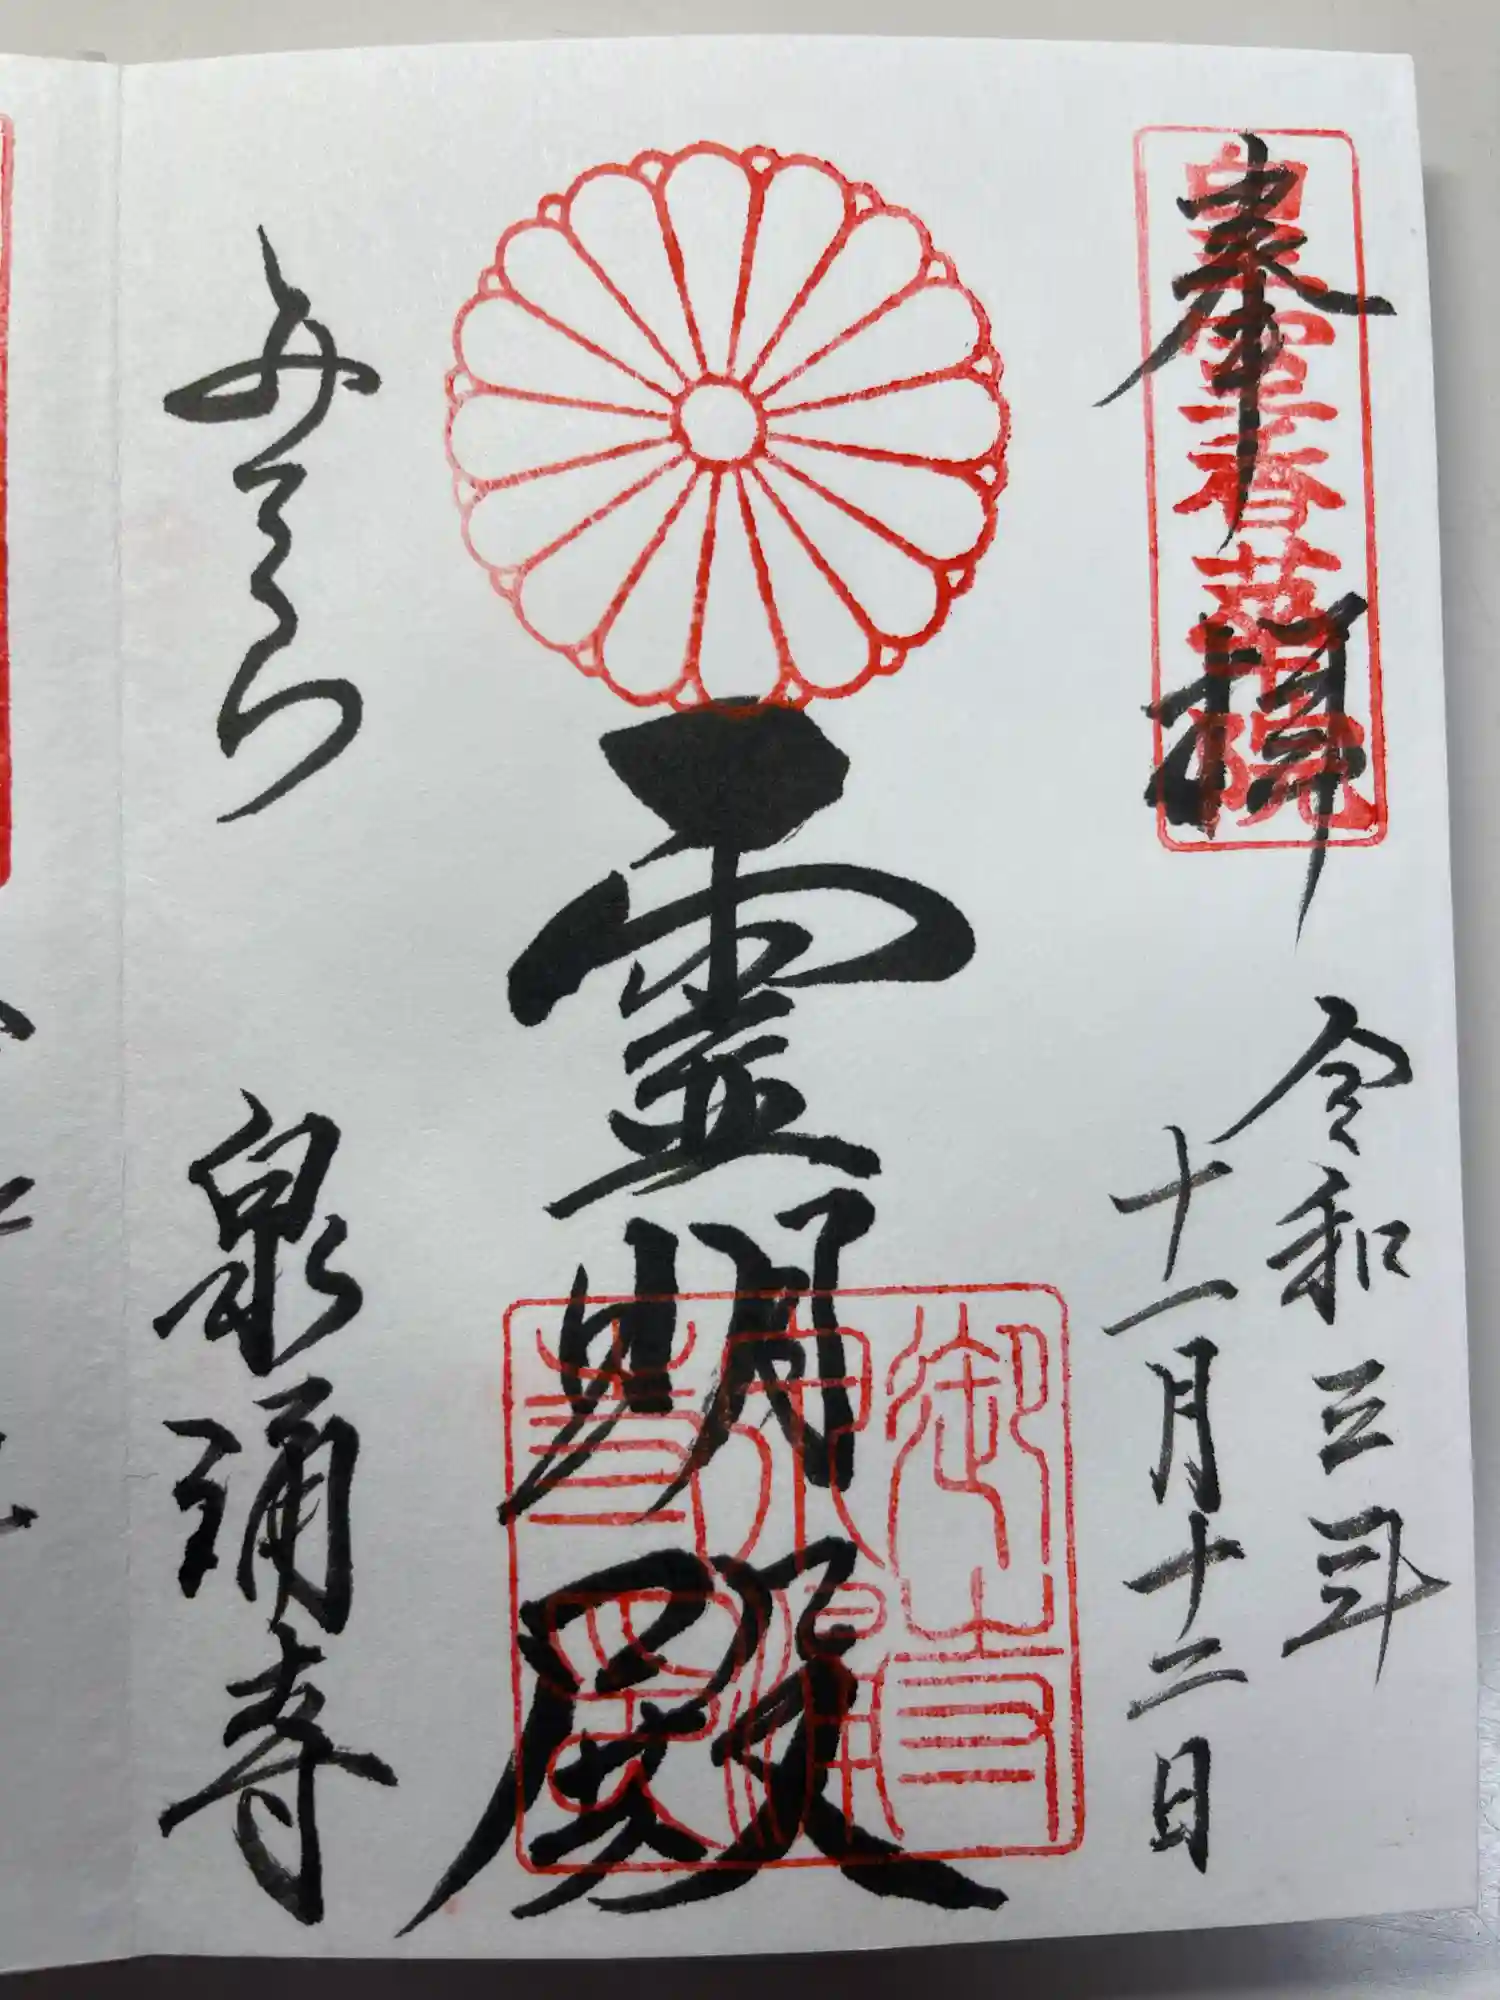 奉拝
皇室香華院
令和三年
十一月十二日
霊明殿
御寺
泉涌寺